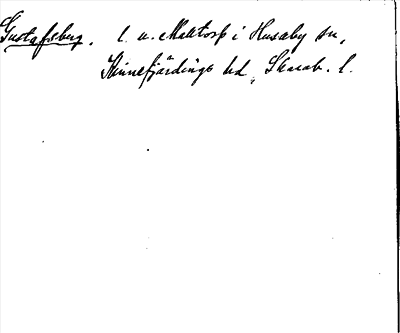 Gustafsberg. l. u. Malltorp i Husaby sn,
Kinnefjärdings hd, Skarab. l.